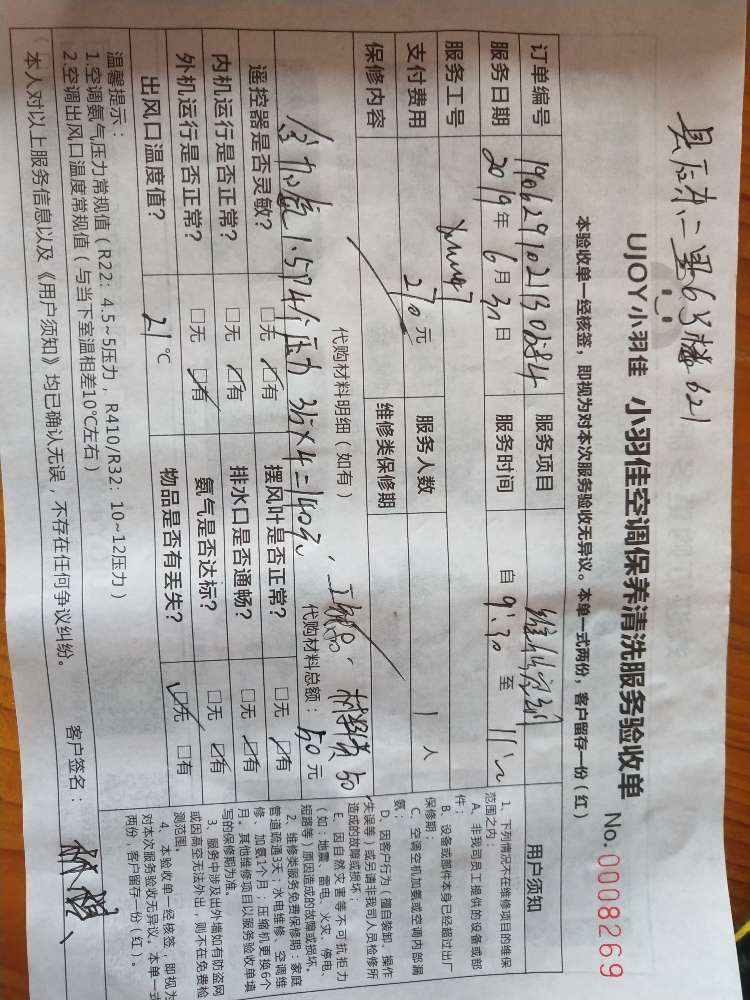 UJOY小羽佳 小羽佳空调保养清洗服务验收单
No. 0008269
本验收单一经核签，即视为对本次服务验收无异议。本单一式两份，客户留存一份（红）
订单编号
服务项目
服务日期 2019年 6月 日 服务时间 自 9:30 至 11:
服务工号
支付费用 270 元 服务人数 1 人
保修内容 维修类保修期
代购材料明细（如有）
空 加氨 1.5 压力 35×4=140元 材料费50
代购材料总额：50 元
遥控器是否灵敏？ □无 ☑有 摆风叶是否正常？ □无 ☑有
内机运行是否正常？ □无 ☑有 排水口是否通畅？ □无 ☑有
外机运行是否正常？ □无 ☑有 氨气是否达标？ □无 ☑有
出风口温度值？ 21 ℃ 物品是否有丢失？ ☑无 □有
温馨提示：
1.空调氨气压力常规值（R22：4.5~5压力，R410/R32：10~12压力）
2.空调出风口温度常规值（与当下室温相差10℃左右）
（本人对以上服务信息以及《用户须知》均已确认无误，不存在任何争议纠纷。 客户签名：
用户须知
1、下列情况不在维修项目的维保
范围之内：
A、非我司员工提供的设备或部
件；
B、设备或部件本身已经超过出厂
保修期；
C、空调空机加氨或空调内部漏
氨；
D、因客户行为（擅自装卸、操作
失误等）或另请非我司人员检修所
造成的故障或损坏；
E、因自然灾害等不可抗拒力
（如：地震、雷电、火灾、停电、
短路等）原因造成的故障或损坏。
2、维修类服务免费保修期：家庭
管道疏通3天；水电维修、空调维
修、加氨1个月；压缩机更换6个
月。其他维修项目以服务验收单填
写的保修期为准。
3、服务中涉及出外墙如有防盗网
或因高空无法外出，则不在免费检
测范围。
4、本验收单一经核签，即视为
对本次服务验收无异议。本单一式
两份，客户留存一份（红）。